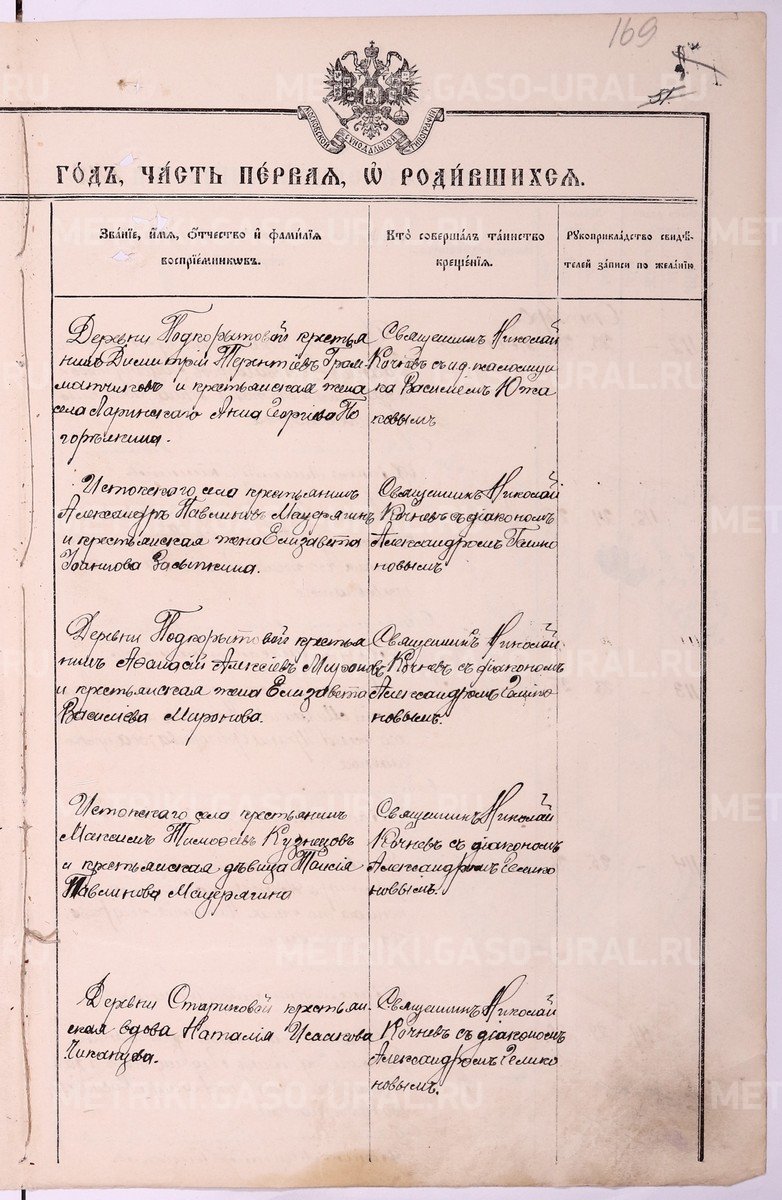 169
51
МОСКОВСКОЙ СѴНОДАЛЬНОЙ ТИПОГРАФІИ
ГО́ДЪ, ЧА́СТЬ ПЕ́РВАЯ, Ѽ РОДИ́ВШИХСЯ.
Зва́нїе, и҆́мѧ, ѻ҆́тчество и҆ фами́лїѧ
воспрїе́мникѡвъ.
Кто̀ соверша́лъ та́инство
креще́нїѧ.
Рꙋкоприкла́дство свидѣ́-
телей за́писи по жела́нїю
Деревни Подкорытовой крестья
нинъ Димитрій Терентіевъ Грам
матчиковъ и крестьянская жена
села Ларинскаго Анна Георгіева По
горѣлкина.
Священникъ Николай
Кочневъ съ и.д. псаломщи
ка Василіемъ Южа
ковымъ
Истокскаго села крестьянинъ
Александръ Павлиновъ Мащерягинъ
и крестьянская жена Елизавета
Іоаннова Засыпкина.
Священникъ Николай
Кочневъ съ діакономъ
Александромъ Гелико
новымъ
Деревни Подкорытовой крестья
нинъ Аѳанасій Алексіевъ Мироновъ
и крестьянская жена Елизавета
Василіева Миронова.
Священникъ Николай
Кочневъ съ діакономъ
Александромъ Гелико
новымъ.
Истокскаго села крестьянинъ
Максимъ Тимоѳеевъ Кузнецовъ
и крестьянская дѣвица Таисія
Павлинова Мащерягина
Священникъ Николай
Кочневъ съ діакономъ
Александромъ Гелико
новымъ.
Деревни Стариковой крестьян-
ская вдова Наталія Исаакова
Чиканцова.
Священникъ Николай
Кочневъ съ діакономъ
Александромъ Гелико
новымъ.
METRIKI.GASO-URAL.RU